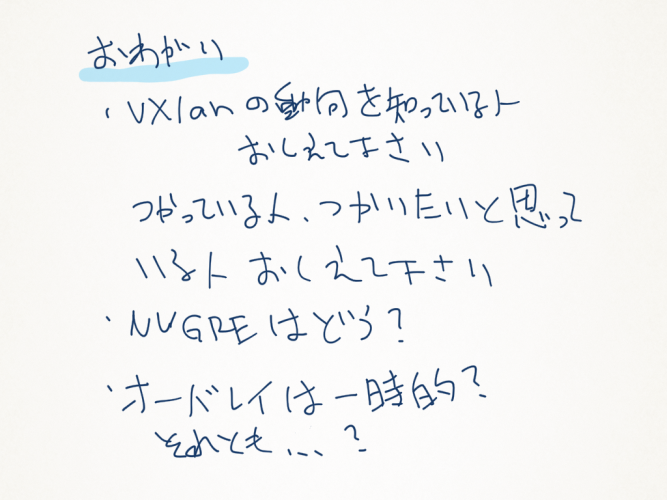 おわがい
・VXlanの動向を知っている人
おしえて下さい
つかっている人、つかいたいと思って
いる人 おしえて下さい
・NVGREはどう？
・オーバレイは一時的？
それとも…？